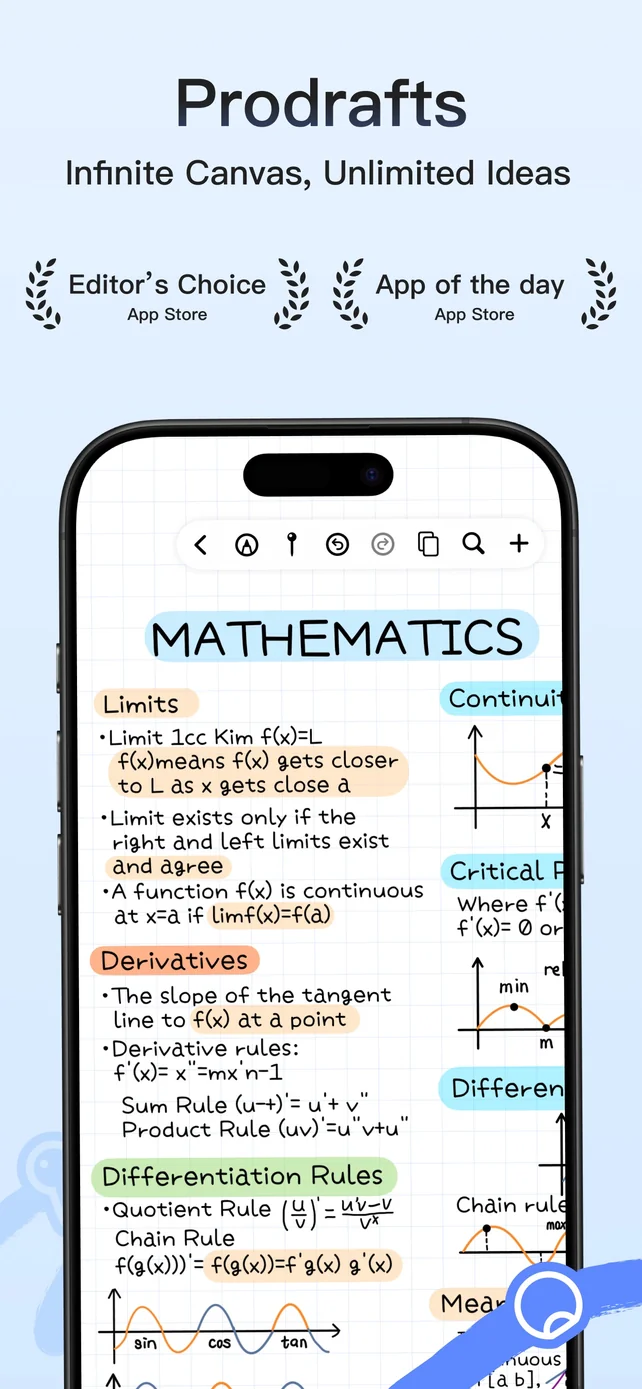 Prodrafts
Infinite Canvas, Unlimited Ideas
Editor's Choice
App Store
App of the day
App Store
MATHEMATICS
Limits
•Limit 1cc Kim f(x)=L
f(x)means f(x) gets closer
to L as x gets close a
•Limit exists only if the
right and left limits exist
and agree
•A function f(x) is continuous
at x=a if limf(x)=f(a)
Derivatives
•The slope of the tangent
line to f(x) at a point
•Derivative rules:
f'(x)= x"=mx'n-1
Sum Rule (u-+)'= u'+ v"
Product Rule (uv)'=u"v+u"
Differentiation Rules
•Quotient Rule (u/v)'= u'v-v/vˣ
Chain Rule
f(g(x)))'= f(g(x))=f'g(x) g'(x)
sin cos tan
Continuit
x
Critical P
Where f'(
f'(x)= 0 or
min rel
m
Differen
Chain rule
max
Mear
nuous
[a b],